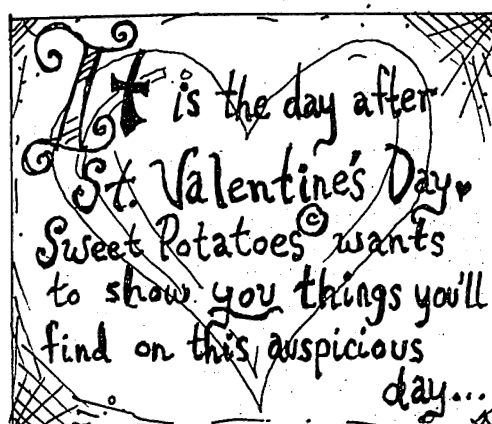 It is the day after
St. Valentine's Day.
Sweet Potatoes© wants
to show you things you'll
find on this auspicious
day...